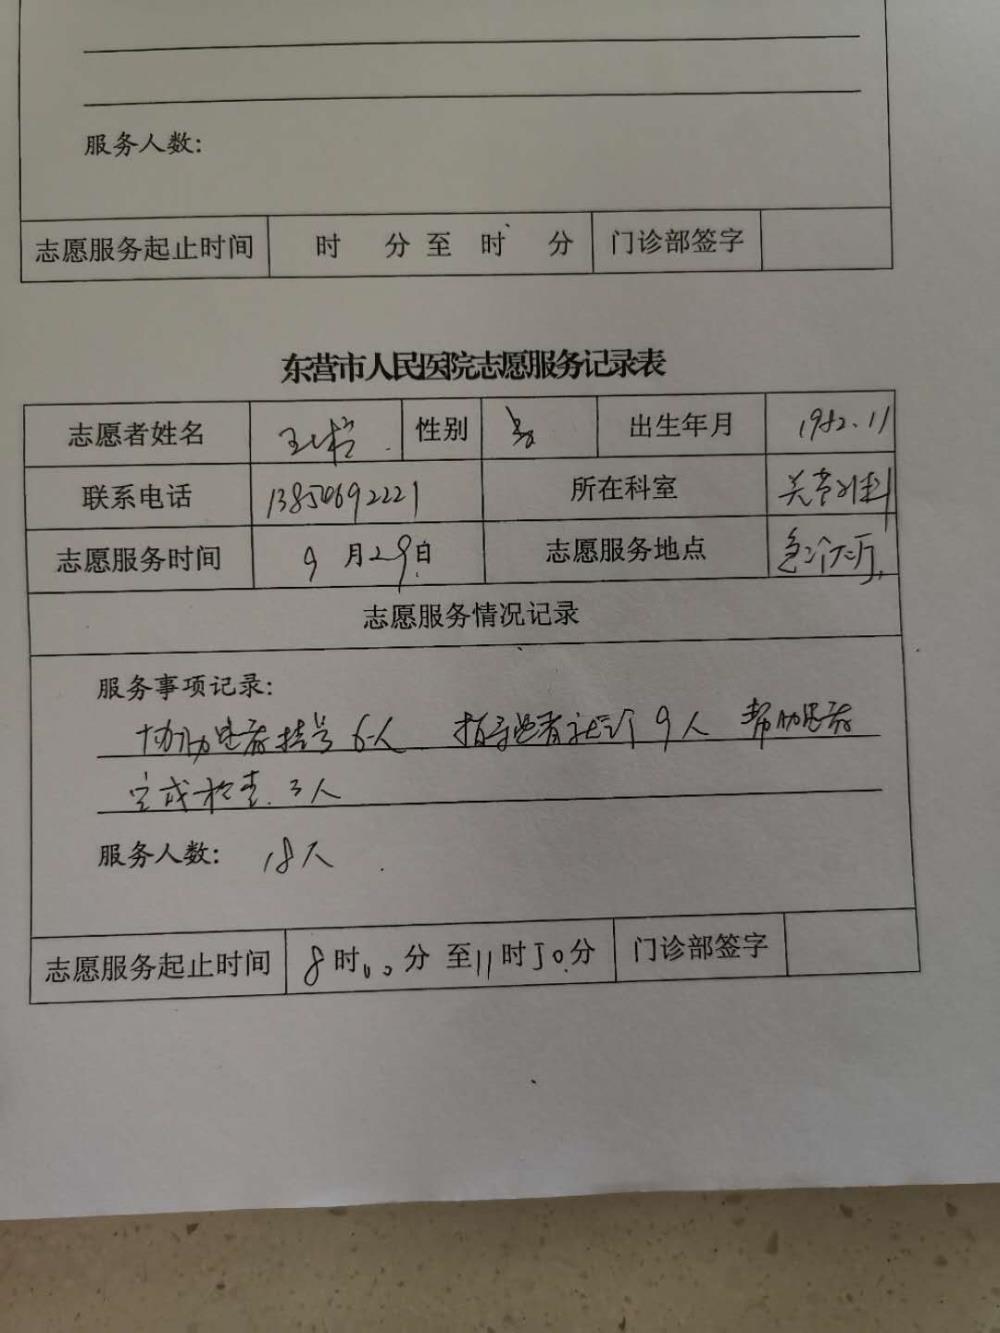 服务人数:
志愿服务起止时间 时 分 至 时 分 门诊部签字
东营市人民医院志愿服务记录表
志愿者姓名 性别 男 出生年月 1982.11
联系电话 13854692221 所在科室 关节外科
志愿服务时间 9 月29日 志愿服务地点 急诊大厅
志愿服务情况记录
服务事项记录:
协助患者挂号 6人 指导患者就诊 9人 帮助患者
完成检查 3人
服务人数: 18人
志愿服务起止时间 8时00分 至11时50分 门诊部签字